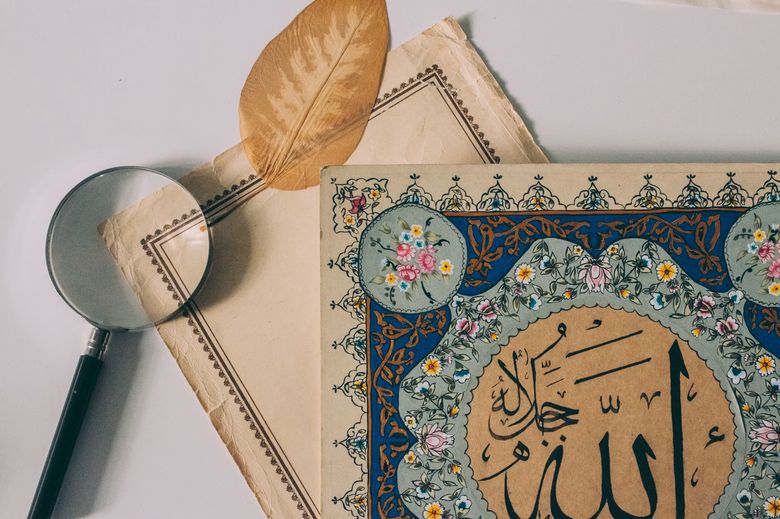 الله
جلاله